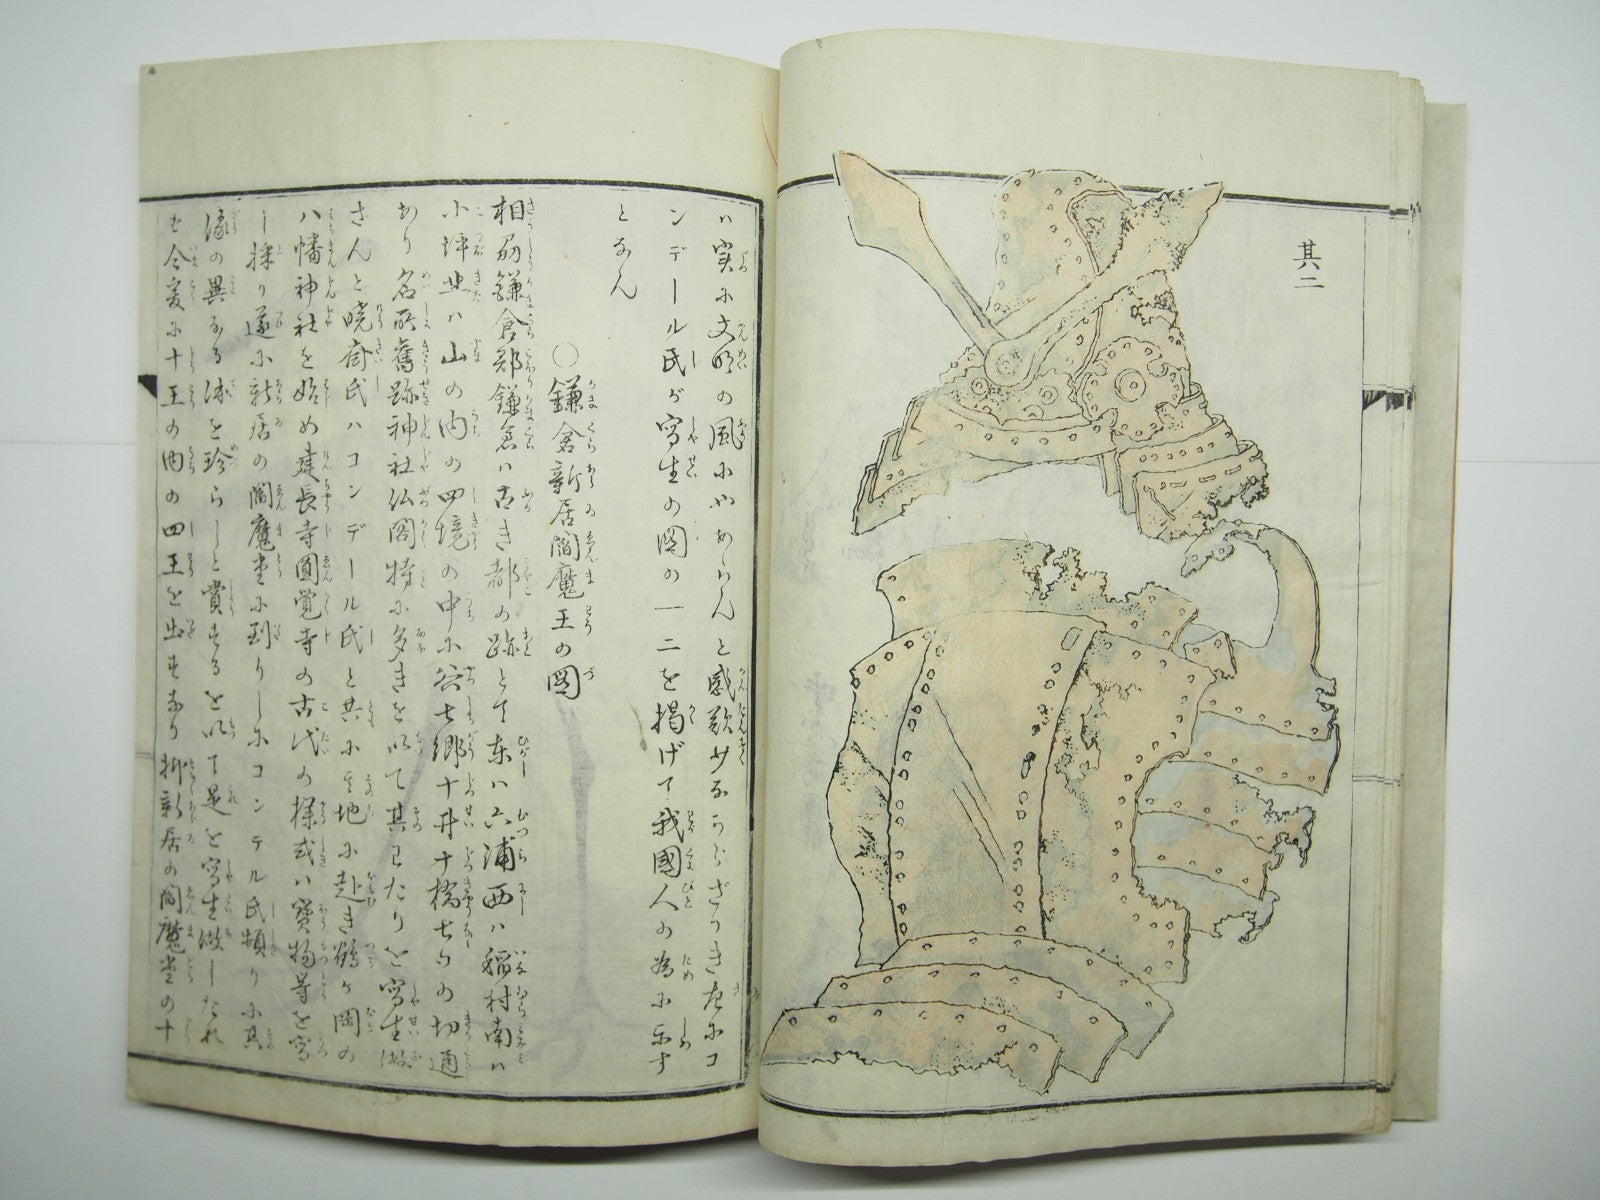 其二
ハ実に文明の風にやあらんと感歎少なからざりき左にコ
ンデール氏が写生の図の一二を掲げて我國人の為に示す
となん
〇鎌倉新居閻魔王の図
相州鎌倉郡鎌倉ハ古き都の跡とて東ハ六浦西ハ稲村南ハ
小坪北ハ山の内の四境の中に谷七郷十井十橋七ツの切通
あり名所舊跡神社仏閣特に多きを以て其わたりを写生做
さんと暁斎氏ハコンデール氏と共に其地に赴き鶴ヶ岡の
八幡神社を始め建長寺圓覚寺の古代の様式ハ寳物等を写
し採り遂に新居の閻魔堂に到りしにコンテル氏頻りに其
像の異なる体を珍らしと賞するを以て是を写生做したれ
ど今爰に十王の内の四王を出すなり抑新居の閻魔堂の十